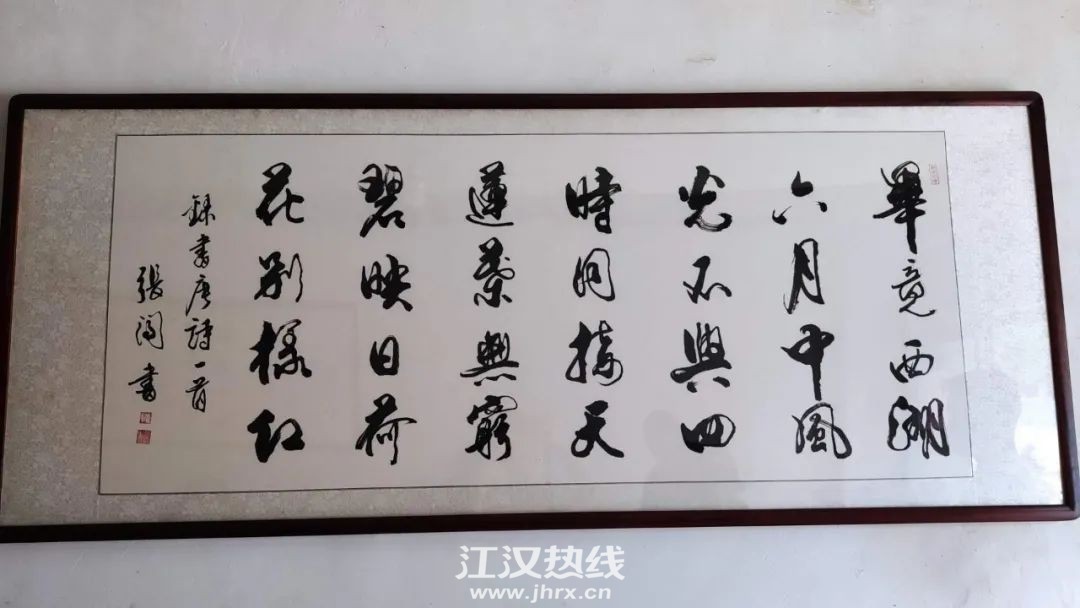 畢竟西湖
六月中風
光不與四
時同接天
蓮葉無窮
碧映日荷
花别樣红
録書唐詩一首
張闯書
江汉热线
www.jhrx.cn